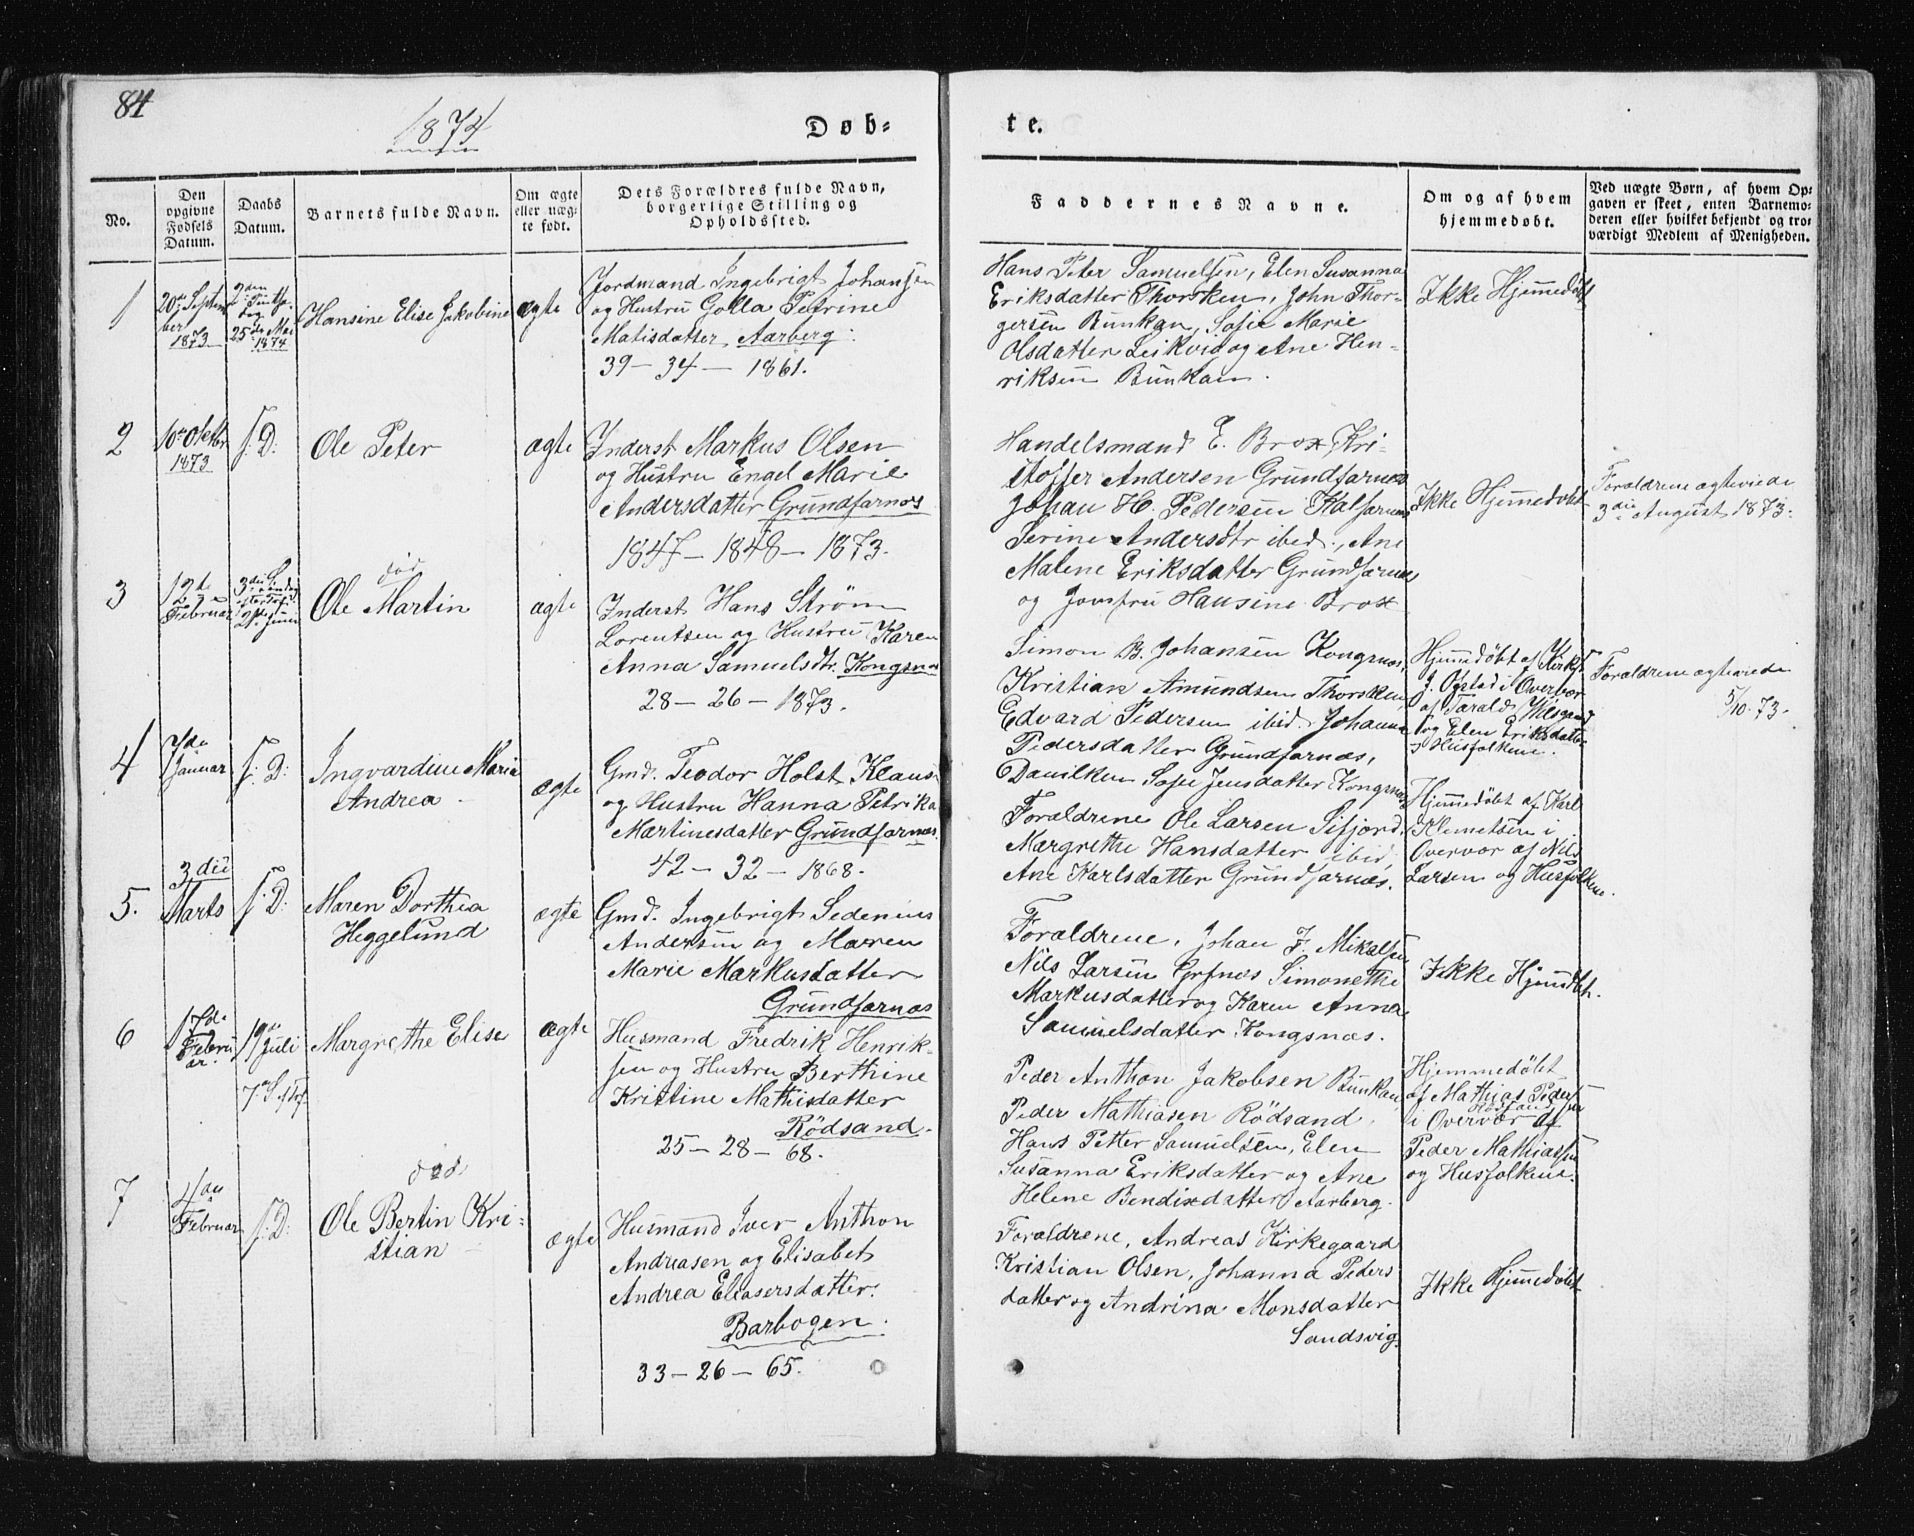 84
1874
Døb-
te.
No.
Den opgivne Fødsels Datum.
Daabs Datum.
Barnets fulde Navn.
Om ægte eller uæg-te født.
Dets Forældres fulde Navn, borgerlige Stilling og Opholdssted.
Faddernes Navne.
Om og af hvem hjemmedøbt.
Ved uægte Børn, af hvem Op-
gaven er skeet, enten Barnemo-
deren eller hvilket bekjendt og tro-
værdigt Medlem af Menigheden.
1
20de Septem
ber
1873
2den
Pintse
dag
25de Mai
1874
Hansine Elise Jakobine
ægte
Jordmand Ingebrigt Johansen
og Hustru Golla Petrine
Matisdatter, Aarberg.
39 – 34 – 1861.
Hans Peter Samuelsen, Elen Susanna
Eriksdatter Thorsken, John Thor-
gersen Bunkan, Sofie Marie
Olsdatter Leikvig og Ane Hen-
riksen Bunkan.
Ikke Hjemmedøbt
2
10de Oktbr
1873
s. D.
Ole Peter
ægte
Inderst Markus Olsen
og Hustru Engel Marie
Andersdatter Grundfarnæs
1847 – 1848 – 1873.
Handelsmand E. Brox, Kri-
stoffer Andersen Grundfarnæs
Johan H. Pedersen Kalfarnæs
Serine Andersdtr ibed., Ane
Malene Eriksdatter Grundfarnæs
og Jomfru Hansine Brox
Ikke Hjemmedøbt
Forældrene ægteviede
3die August 1873.
3
12te
Februar
3die S.
død
Ole Martin
ægte
Inderst Hans Strøm
Lorentsen og Hustru Karen
Anna Samuelsdtr. Kongsnæs
28 – 26 – 1873.
Simon B. Johansen Kongsnæs,
Kristian Amundsen Thorsken,
Edvard Pedersen ibid. Johanna
Pedersdatter Grundfarnæs,
Danilken Sofie Jensdatter Kongsnæs
Hjemmedøbt af Kirks.
J. Øgstad i Overvær
af Tarald
og Elen Eriksdatter
Husfolkene.
Forældrene ægteviede
5/10. 73.
4
7de
Januar
s. D.
Ingvardine Maria
Andrea
ægte
Gmd. Teodor Holst Klaus
og Hustru Hanna Petrika
Martinesdatter Grundfarnæs.
42 – 32 – 1868.
Forældrene Ole Larsen Sifjord.
Margrethe Hansdatter ibid.
Ane Karlsdatter Grundfarnæs.
Hjemmedøbt af Karl
Klemetsen i
Overvær af Nils
Larsen og Husfolkene.
5.
3die
Marts
s. D.
Maren Dorthea
Heggelund
ægte
Gmd. Ingebrigt Sedenius
Andersen og Maren
Marie Markusdatter
Grundfarnæs
Forældrene, Johan F. Mikalsen
Nils Larsen Grfnæs Simonethe
Markusdatter og Karen Anna
Samuelsdatter Kongsnæs.
Ikke Hjemdøbt.
6
17de
Febru
ar.
19de
Juli
7de S. e. Tref
Margrethe Elise
ægte
Husmand Fredrik Henrik-
sen og Hustru Berthine
Kristine Mathisdatter
Rödsand.
25 – 28 – 68.
Peder Anthon Jakobsen Bunkan,
Peder Mathiasen Rödsand.
Hans Petter Samuelsen, Elen
Susanna Eriksdatter og Ane
Helene Bendixdatter Aarberg.
Hjemmedøbt
af Mathias Pedersen
i Overvær af
Peder Mathiassen
og Husfolkene.
7
4de
Februar
s. D.
død
Ole Bertin Kri-
stian
ægte
Husmand Iver Anthon
Andreasen og Elisabet
Andrea Eliasersdatter.
Barbogen.
33 – 26 – 65.
Forældrene, Andreas Kirkegaard
Kristian Olsen, Johanna Peders
datter og Andrina Monsdatter
Sandsvig.
Ikke Hjemmedøbt